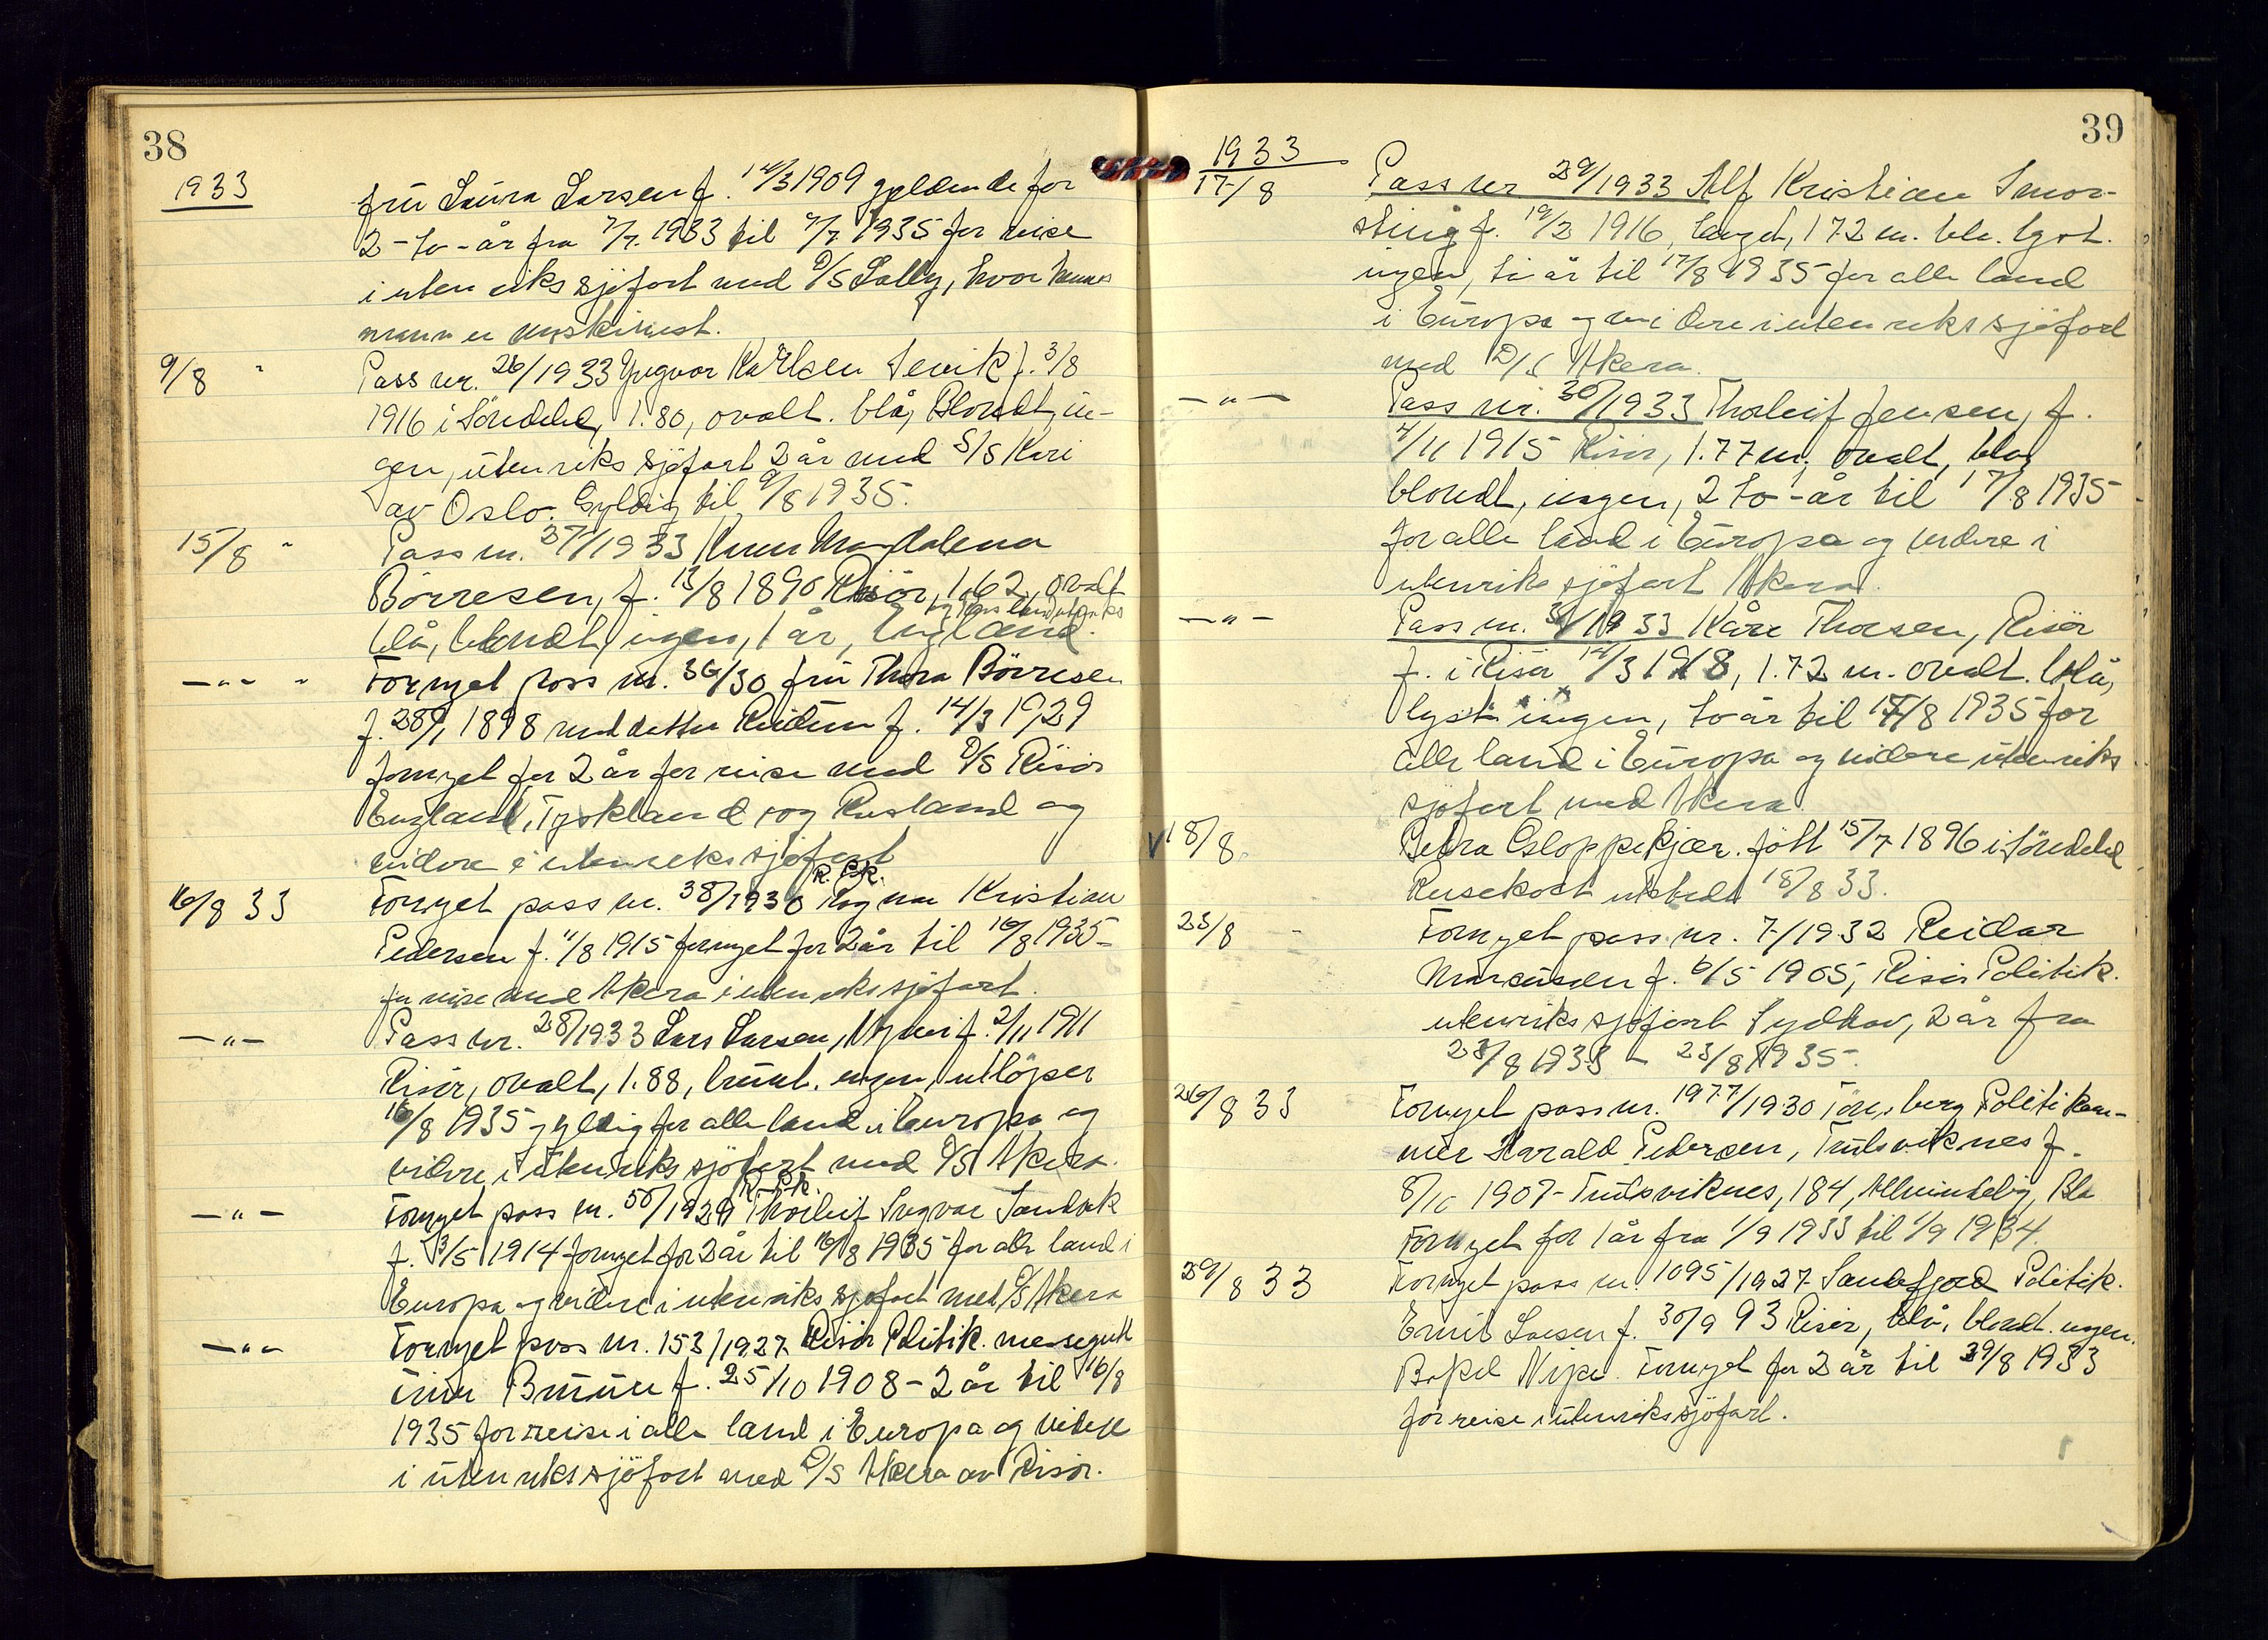 38
1933
frü Laura Larsen f. 14/3 1909 gjeldende for
2-to-år fra 7/7. 1933 til 7/7 1935 for reise
i utenriks sjöfart med D/S Sally, hvor hennes
mann er maskinist.
9/8 " Pass nr. 26/1933 Yngvar Karlsen Sevik f. 3/8
1916 i Söndeled, 1.80, ovalt. blå, Blondt, in-
gen, utenriks sjöfart 2 år med S/S Kari
av Oslo. Gyldig til 9/8 1935.
15/8 " Pass nr. 27/1933 Karen Magdalena
Börresen, f. 13/8 1890 Risör, 1.62, ovalt
blå, blondt, ingen, 1 år, England.
—"— " Fornyet pass nr. 36/30 frü Thora Börresen
f. 28/1 1898 med datter Reidun f. 14/3 1929
fornyet for 2 år for reise med D/S Risör
England, Tyskland og Rusland og
videre i utenriks sjöfart
R. Pk.
16/8 33 Fornyet pass nr. 38/1930 Ragnar Kristian
Pedersen f. 11/8 1915 fornyet for 2 år til 16/8 1935-
for reise med Akera i utenriks sjöfart.
—"— Pass nr. 28/1933 Lars Larsen, f. 2/11 1911
Risör, ovalt, 1.88, brunt. ingen, utlöper
16/8 1935 gyldig for alle land i Europa og
videre i utenriks sjöfart med D/S Akera.
R. Pk.
—"— Fornyet pass nr. 50/1929 Thorleif Ingvar Sandvik
f. 3/5 1914 fornyet for 2 år til 16/8 1935 for alle land i
Europa og videre i utenriks sjöfart med D/S Akera
—"— Fornyet pass nr. 153/1927 Risör Politik. messegutt
Einar Bruun f. 25/10 1908 - 2 år til 16/8
1935 for reise i alle land i Europa og videre
i utenriks sjöfart med D/S Akera av Risör.
39
1933
17/8 Pass nr 29/1933 Alf Kristian Smor-
sting f. 19/2 1916, 172 m. blå. lyst.
ingen, to år til 17/8 1935 for alle land
i Europa og videre i utenriks sjöfart
med D/S Akera.
—"— Pass nr. 30/1933 Thorleif Jensen, f.
4/11 1915 Risör, 1.77 m, ovalt, blå
blondt, ingen, 2 to-år til 17/8 1935
for alle land i Europa og videre i
utenriks sjöfart Akera.
—"— Pass nr. 31/1933 Kåre Thorsen, Risör
f. i Risör 14/3 1918, 1.72 m. ovalt. blå,
lyst. ingen, to år til 17/8 1935 for
alle land i Europa og videre utenriks
sjöfart med Akera.
v 18/8. Petra Gloppekjær. födt 15/7 1896 i Söndeled
Reisekort utstedt 18/8 33.
23/8 " Fornyet pass nr. 7/1932 Reidar
Marcussen f. 6/5 1905, Risör Politik.
utenriks sjöfart Sydhav, 2 år fra
23/8 1933 - 23/8 1935.
26/8 33 Fornyet pass nr. 1977/1930 Tönsberg Politikam-
mer Harald Pedersen, Trulsviknes f.
8/10 1907 - Trulsviknes, 184, Almindelig, Blå
Fornyet for 1 år fra 1/9 1933 til 1/9 1934.
29/8 33 Fornyet pass nr. 1095/1927 Sandefjord Politik.
Emil Larsen f. 30/9 93 Risör, blå, blondt. ingen.
Fornyet for 2 år til 29/8 1933
for reise i utenriks sjöfart.